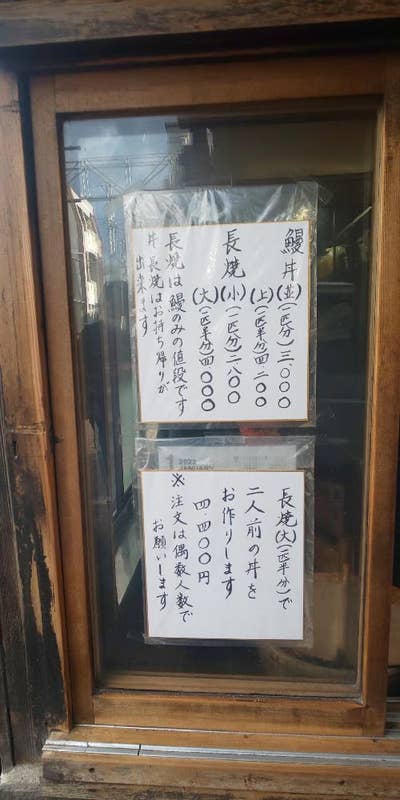 鰻丼(並)(一匹分)三、〇〇〇
(上)(一匹半分)四二〇〇
長焼(小)(一匹分)二八〇〇
(大)(一匹半分)四〇〇〇
長焼は鰻のみの値段です
丼長焼はお持ち帰りが
出来ます
1 2022
JANUARY
長焼(大)(一匹半分)で
二人前の丼を
お作りします
四四〇〇円
※注文は偶数人数で
お願いします